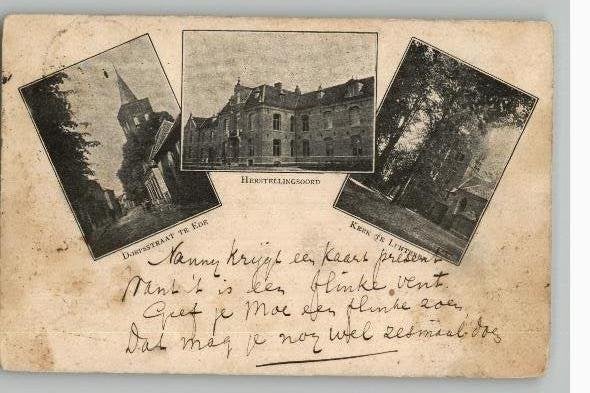 HERSTELLINGSOORD
DORPSSTRAAT TE EDE
KERK TE LUNTEREN
Nanny krijgt een kaart present
Want 't is een flinke vent.
Geef je Moe een flinke zoen
Dat mag je nog wel zesmaal doen